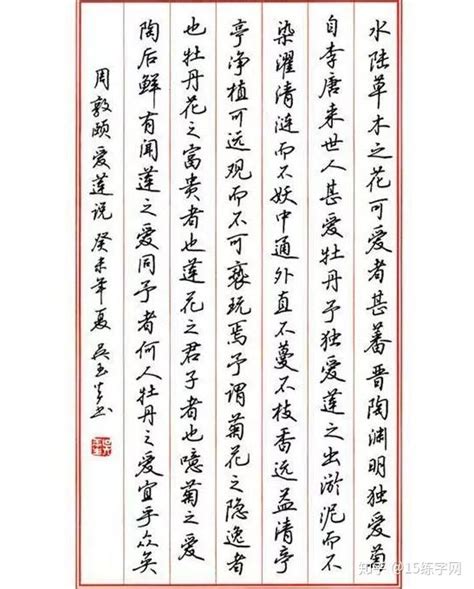 水陆草木之花可爱者甚蕃晋陶渊明独爱菊
自李唐来世人甚爱牡丹予独爱莲之出淤泥而不
染濯清涟而不妖中通外直不蔓不枝香远益清亭
亭净植可远观而不可亵玩焉予谓菊花之隐逸者
也牡丹花之富貴者也莲花之君子者也噫菊之爱
陶后鲜有闻莲之爱同予者何人牡丹之爱宜乎众矣
周敦颐爱莲说 癸未年夏 吴玉生书
知乎 @15练字网